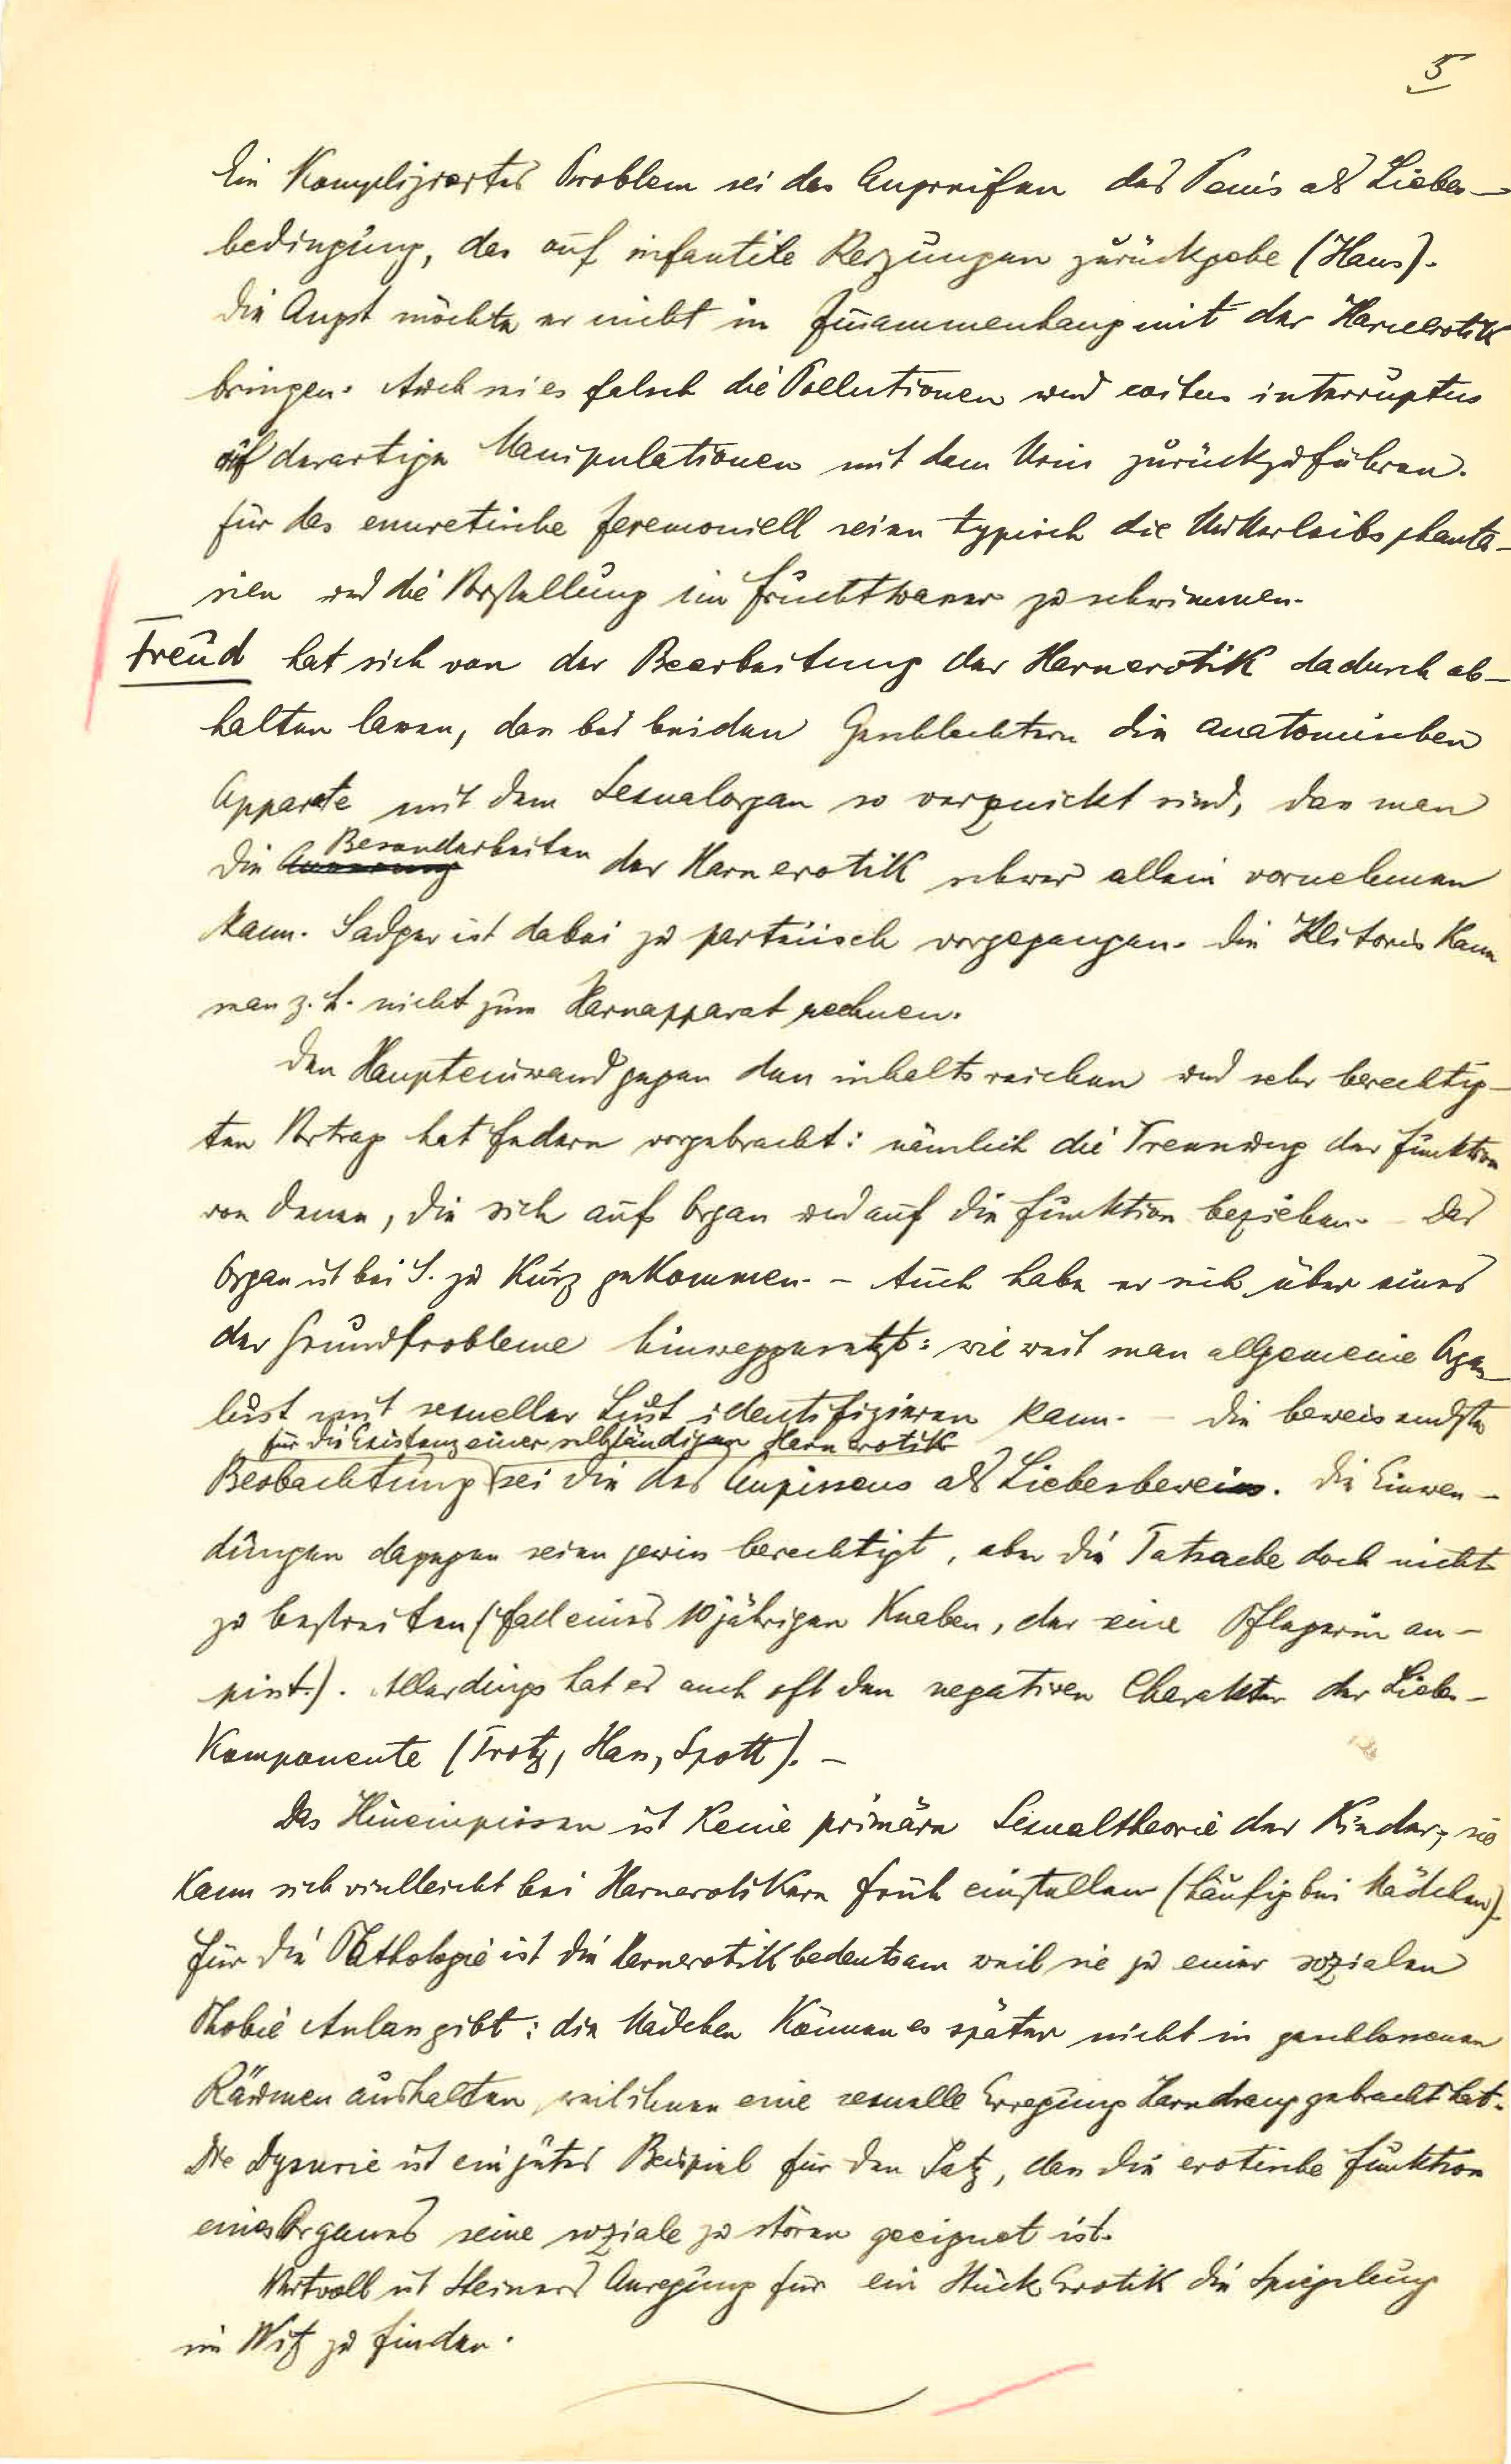 5
Ein Kompliziertes Problem sei das Angreifen des Penis als Liebes-
bedingung, das auf infantile Reizungen zurückgehe (Haus).
Die Angst möchte er nicht in Zusammenhang mit der Harnerotik
bringen. Auch sei es falsch die Pollutionen und coitus interruptus
auf derartige Manipulationen mit dem Urin zurückzuführen.
Für das enuretische Zeremoniell seien typisch die Mutterleibsphanta-
sien und die Vorstellung im Fruchtwasser zu schwimmen.
Freud hat sich von der Bearbeitung der Harnerotik dadurch ab-
halten lassen, dass bei beiden Geschlechtern die anatomischen
Apparate mit dem Sexualorgan so verquickt sind, dass man
die Besonderheiten der Harnerotik schwer allein vornehmen
kann. Sadger ist dabei zu parteiisch vorgegangen. Die Klitoris Kann
man z. B. nicht zum Harnapparat rechnen.
Den Haupteinwand gegen den inhaltsreichen und sehr berechtig-
ten Vortrag hat Federn vorgebracht: nämlich die Trennung der Funktion
von denen, die sich aufs Organ und auf die Funktion beziehen. – Das
Organ ist bei S. zu Kurz gekommen. – Auch habe er sich über eines
der Grundprobleme hinweggesetzt: wie weit man allgemeine Organ-
lust mit sexueller Lust identifizieren kann. – Die beweisendste
für die Existenz einer selbständigen Harnerotik
Beobachtung sei die des Anpissens als Liebesbeweis. Die Einwen-
dungen dagegen seien gewiss berechtigt, aber die Tatsache doch nicht
zu bestreiten (Fall eines 10 jährigen Knaben, der eine Pflegerin an-
pisst.). Allerdings hat es auch oft den negativen Charakter der Liebes-
Komponente (Trotz, Hass, Spott). –
Das Hineinpissen ist Keine primäre Sexualtheorie der Kinder; sie
Kann sich vielleicht bei Harnerotikern früh einstellen (häufig bei Mädchen).
Für die Pathologie ist die Harnerotik bedeutsam weil sie zu einer sozialen
Phobie Anlass gibt: die Mädchen Können es später nicht in geschlossenen
Räumen aushalten, weil ihnen eine sexuelle Erregung Harndrang gebracht hat.
Die Dysurie ist ein gutes Beispiel für den Satz, dass die erotische Funktion
eines Organes seine soziale zu stören geeignet ist.
Wertvoll ist Steiners Anregung für ein Stück Erotik die Spiegelung
im Witz zu finden.